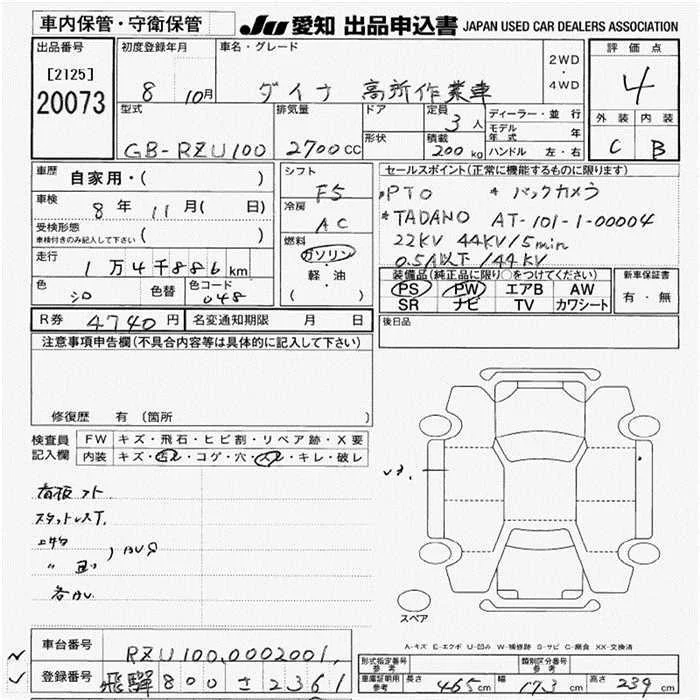 車内保管・守衛保管
JU愛知 出品申込書 JAPAN USED CAR DEALERS ASSOCIATION
出品番号
[2125]
20073
初度登録年月
8 10月
車名・グレード
ダイナ 高所作業車
2WD
・
4WD
評価点
4
外装 内装
C B
型式
GB-RZU100
排気量
2700CC
ドア
形状
定員
3人
積載
200kg
ディーラー・並行
モデル年式 年
ハンドル 左・右
車歴 自家用・( )
車検 8年 11月( 日)
受検形態
車検付きのみ記入して下さい ( )
走行 1万4千886km
色 シロ 色替 色コード 048
シフト F5
冷房 AC
燃料
ガソリン
軽・油
( )
セールスポイント(正常に機能するものに限ります)
*PTO *バックカメラ
*TADANO AT-101-1-00004
22KV 44KV/5min
0.5A以下/44KV
装備品(純正品に限り○をつけてください)
PS PW エアB AW
SR ナビ TV カワシート
新車保証書
有・無
R券 4740円 名変通知期限 月 日
後日品
注意事項申告欄(不具合内容等は具体的に記入して下さい)
修復歴 有 (箇所 )
検査員記入欄
FW キズ・飛石・ヒビ割・リペア跡・X要
内装 キズ・汚レ・コゲ・穴・スレ・キレ・破レ
看板アト
スタットレスT.
各BU.
スペア
A-キズ E-エクボ U-凹み W-補修跡 S-サビ C-腐食 XX-交換済
車台番号 RZU100,0002001,
登録番号 飛騨800さ2361
形式指定番号 参考
類別区分番号 参考
車庫証明用 参考 長さ 465cm 幅 173cm 高さ 239cm